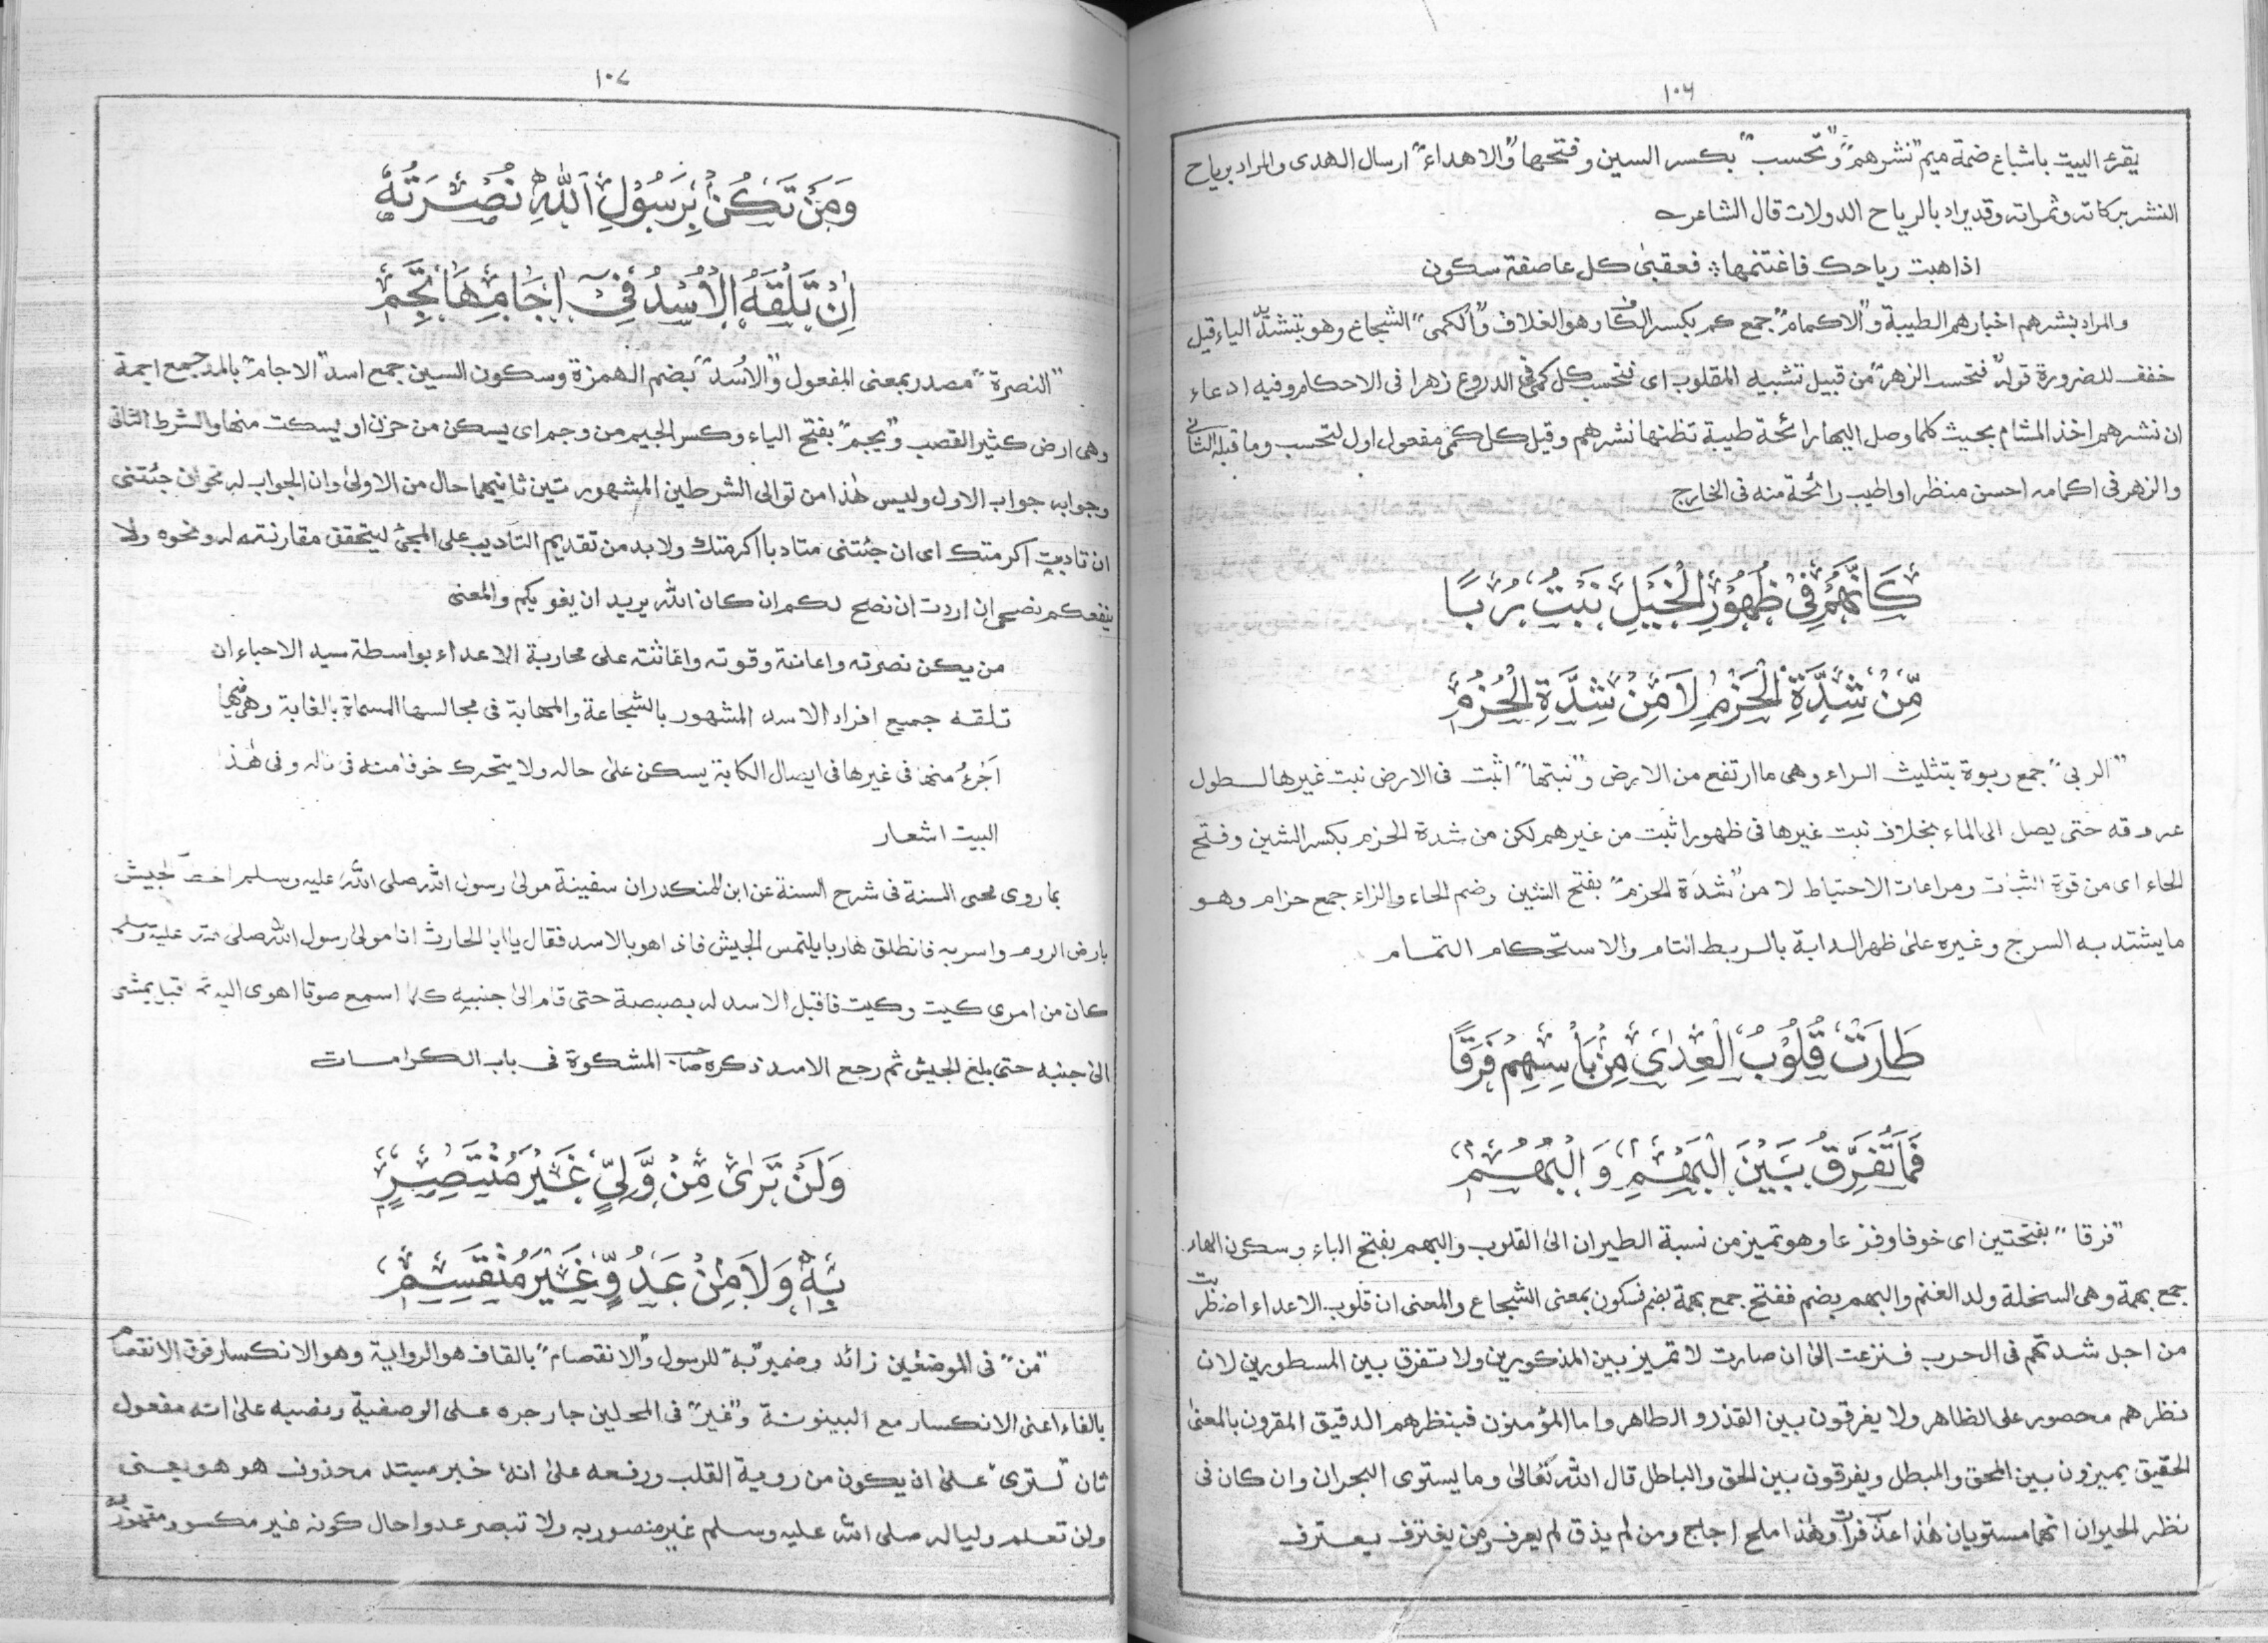 ١٠٦
يقرء البيت باشباع ضمة ميم "نشرهم" و"تحسب" بكسر السين وفتحها "والاهداء" ارسال الهدى والمراد برياح
النشر بركاته وثمراته وقد يراد بالرياح الدولات قال الشاعر
اذا هبت رياحك فاغتنمها ؛ فعقبىٰ كل عاصفة سكون
والمراد بنشرهم اخبارهم الطيبة و"الاكمام" جمع كم بكسر الكاف وهو الغلاف و"الكمى" الشجاع وهو بتشديد الياء قيل
خفف للضرورة قوله "فتحسب الزهر" من قبيل تشبيه المقلوب اى فتحسب كل كمى فى الدروع زهرا فى الاحكام وفيه ادعاء
ان نشرهم اخذ المشام بحيث كلما وصل اليها رائحة طيبة تظنها نشرهم وقيل كل كمى مفعول اول لتحسب وما قبله الثانى
والزهر فى اكمامه احسن منظرا واطيب رائحة منه فى الخارج
كَاَنَّهُمْ فِىْ ظُهُوْرِ الْخَيْلِ نَبْتُ رُبًا
مِّنْ شِدَّةِ الْحَزْمِ لَا مِنْ شَدَّةِ الْحُزُمِ
"الربى" جمع ربوة بتثليث الراء وهى ما ارتفع من الارض و"نبتها" اثبت فى الارض نبت غيرها لطول
عروقه حتى يصل الى الماء بخلاف نبت غيرها فى ظهورا ثبت من غيرهم لكن من شدة الحزم بكسر الشين وفتح
الحاء اى من قوة الثبات ومراعات الاحتياط لا من "شدة الحزم" بفتح الشين وضم الحاء والزاء جمع حزام وهو
ما يشتد به السرج وغيره علىٰ ظهر الدابة بالربط التام والاستحكام التمام
طَارَتْ قُلُوْبُ الْعِدٰى مِنْ بَأْسِهِمْ فَرَقًا
فَمَا تُفَرِّقُ بَيْنَ الْبَهْمِ وَالْبُهُمِ
"فرقا" بفتحتين اى خوفا وفزعا وهو تميز من نسبة الطيران الى القلوب والبهم بفتح الباء وسكون الهاء
جمع بهمة وهى السخلة ولد الغنم والبهم بضم ففتح جمع بهمة بضم فسكون بمعنى الشجاع والمعنى ان قلوب الاعداء اضطربت
من اجل شدتهم فى الحرب فنزعت الىٰ ان صارت لا تميز بين المذكورين ولا تفرق بين المسطورين لان
نظرهم محصور على الظاهر ولا يفرقون بين القذر والطاهر واما المؤمنون فبنظرهم الدقيق المقرون بالمعنى
الحقيق يميزون بين المحق والمبطل ويفرقون بين الحق والباطل قال الله تعالىٰ وما يستوى البحران وان كان فى
نظر الحيوان انهما مستويان هٰذا عذب فرات وهٰذا ملح اجاج ومن لم يذق لم يعرف ومن يغترف يعترف
١٠٧
وَمَنْ تَكُنْ بِرَسُوْلِ اللهِ نُصْرَتُهٗ
اِنْ تَلْقَهُ الْاُسْدُ فِىْ اٰجَامِهَا تَجِمِ
"النصرة" مصدر بمعنى المفعول و"الاسد" بضم الهمزة وسكون السين جمع اسد "الاجام" بالمد جمع اجمة
وهى ارض كثير القصب و"يجم" بفتح الياء وكسر الجيم من وجم اى يسكن من حزن او يسكت منها والشرط الثانى
وجوابه جواب الاول وليس هٰذا من توالى الشرطين المشهور تين ثانيهما حال من الاولىٰ وان الجواب له نحو ان جئتنى
ان تاديت اكرمتك اى ان جئتنى متادبا اكرمتك ولا بد من تقديم التاديب على المجئ ليتحقق مقارنته له ونحوه ولا
ينفعكم نصحى ان اردت ان نصح لكم ان كان الله يريد ان يغويكم والمعنى
من يكن نصرته واعانته وقوته واغاثته على محاربة الاعداء بواسطة سيد الاحباء ان
تلقه جميع افراد الاسد المشهور بالشجاعة والمهابة فى مجالسها المسماة بالغابة وهى فيها
اجرءُ منها فى غيرها فى ايصال الكابة يسكن علىٰ حاله ولا يتحرك خوفا منه فى ناله وفى هٰذا
البيت اشعار
بما روى محى السنة فى شرح السنة عن ابن المنكدر ان سفينة مولىٰ رسول الله صلى الله عليه وسلم اخطأ الجيش
بارض الروم واسر به فانطلق هاربا يلتمس الجيش فاذا هو بالاسد فقال يا ابا الحارث انا مولىٰ رسول الله صلى الله عليه وسلم
كان من امرى كيت وكيت فاقبل الاسد له بصبصة حتى قام الىٰ جنبيه كلما اسمع صوتا اهوى اليه ثم اقبل يمشى
الىٰ جنبه حتى بلغ الجيش ثم رجع الاسد ذكره صاحب المشكوة فى باب الكرامات
وَلَنْ تَرٰى مِنْ وَّلِىٍّ غَيْرَ مُنْتَصِرٍ
بِهٖ وَلَا مِنْ عَدُوٍّ غَيْرَ مُنْقَسِمِ
"من" فى الموضعين زائد وضمير "به" للرسول و"الانقصام" بالقاف هو الرواية وهو الانكسار فوق الانفصام
بالفاء اعنى الانكسار مع البينونة و"غير" فى المحلين جار جره على الوصفية ونصبه علىٰ انه مفعول
ثان "لترى" علىٰ ان يكون من روية القلب ورفعه علىٰ انهٗ خبر مبتد محذوف هو هو يعنى
ولن تعلم وليا له صلى الله عليه وسلم غير منصور به ولا تبصر عدوا حال كونه غير مكسور مقهور به